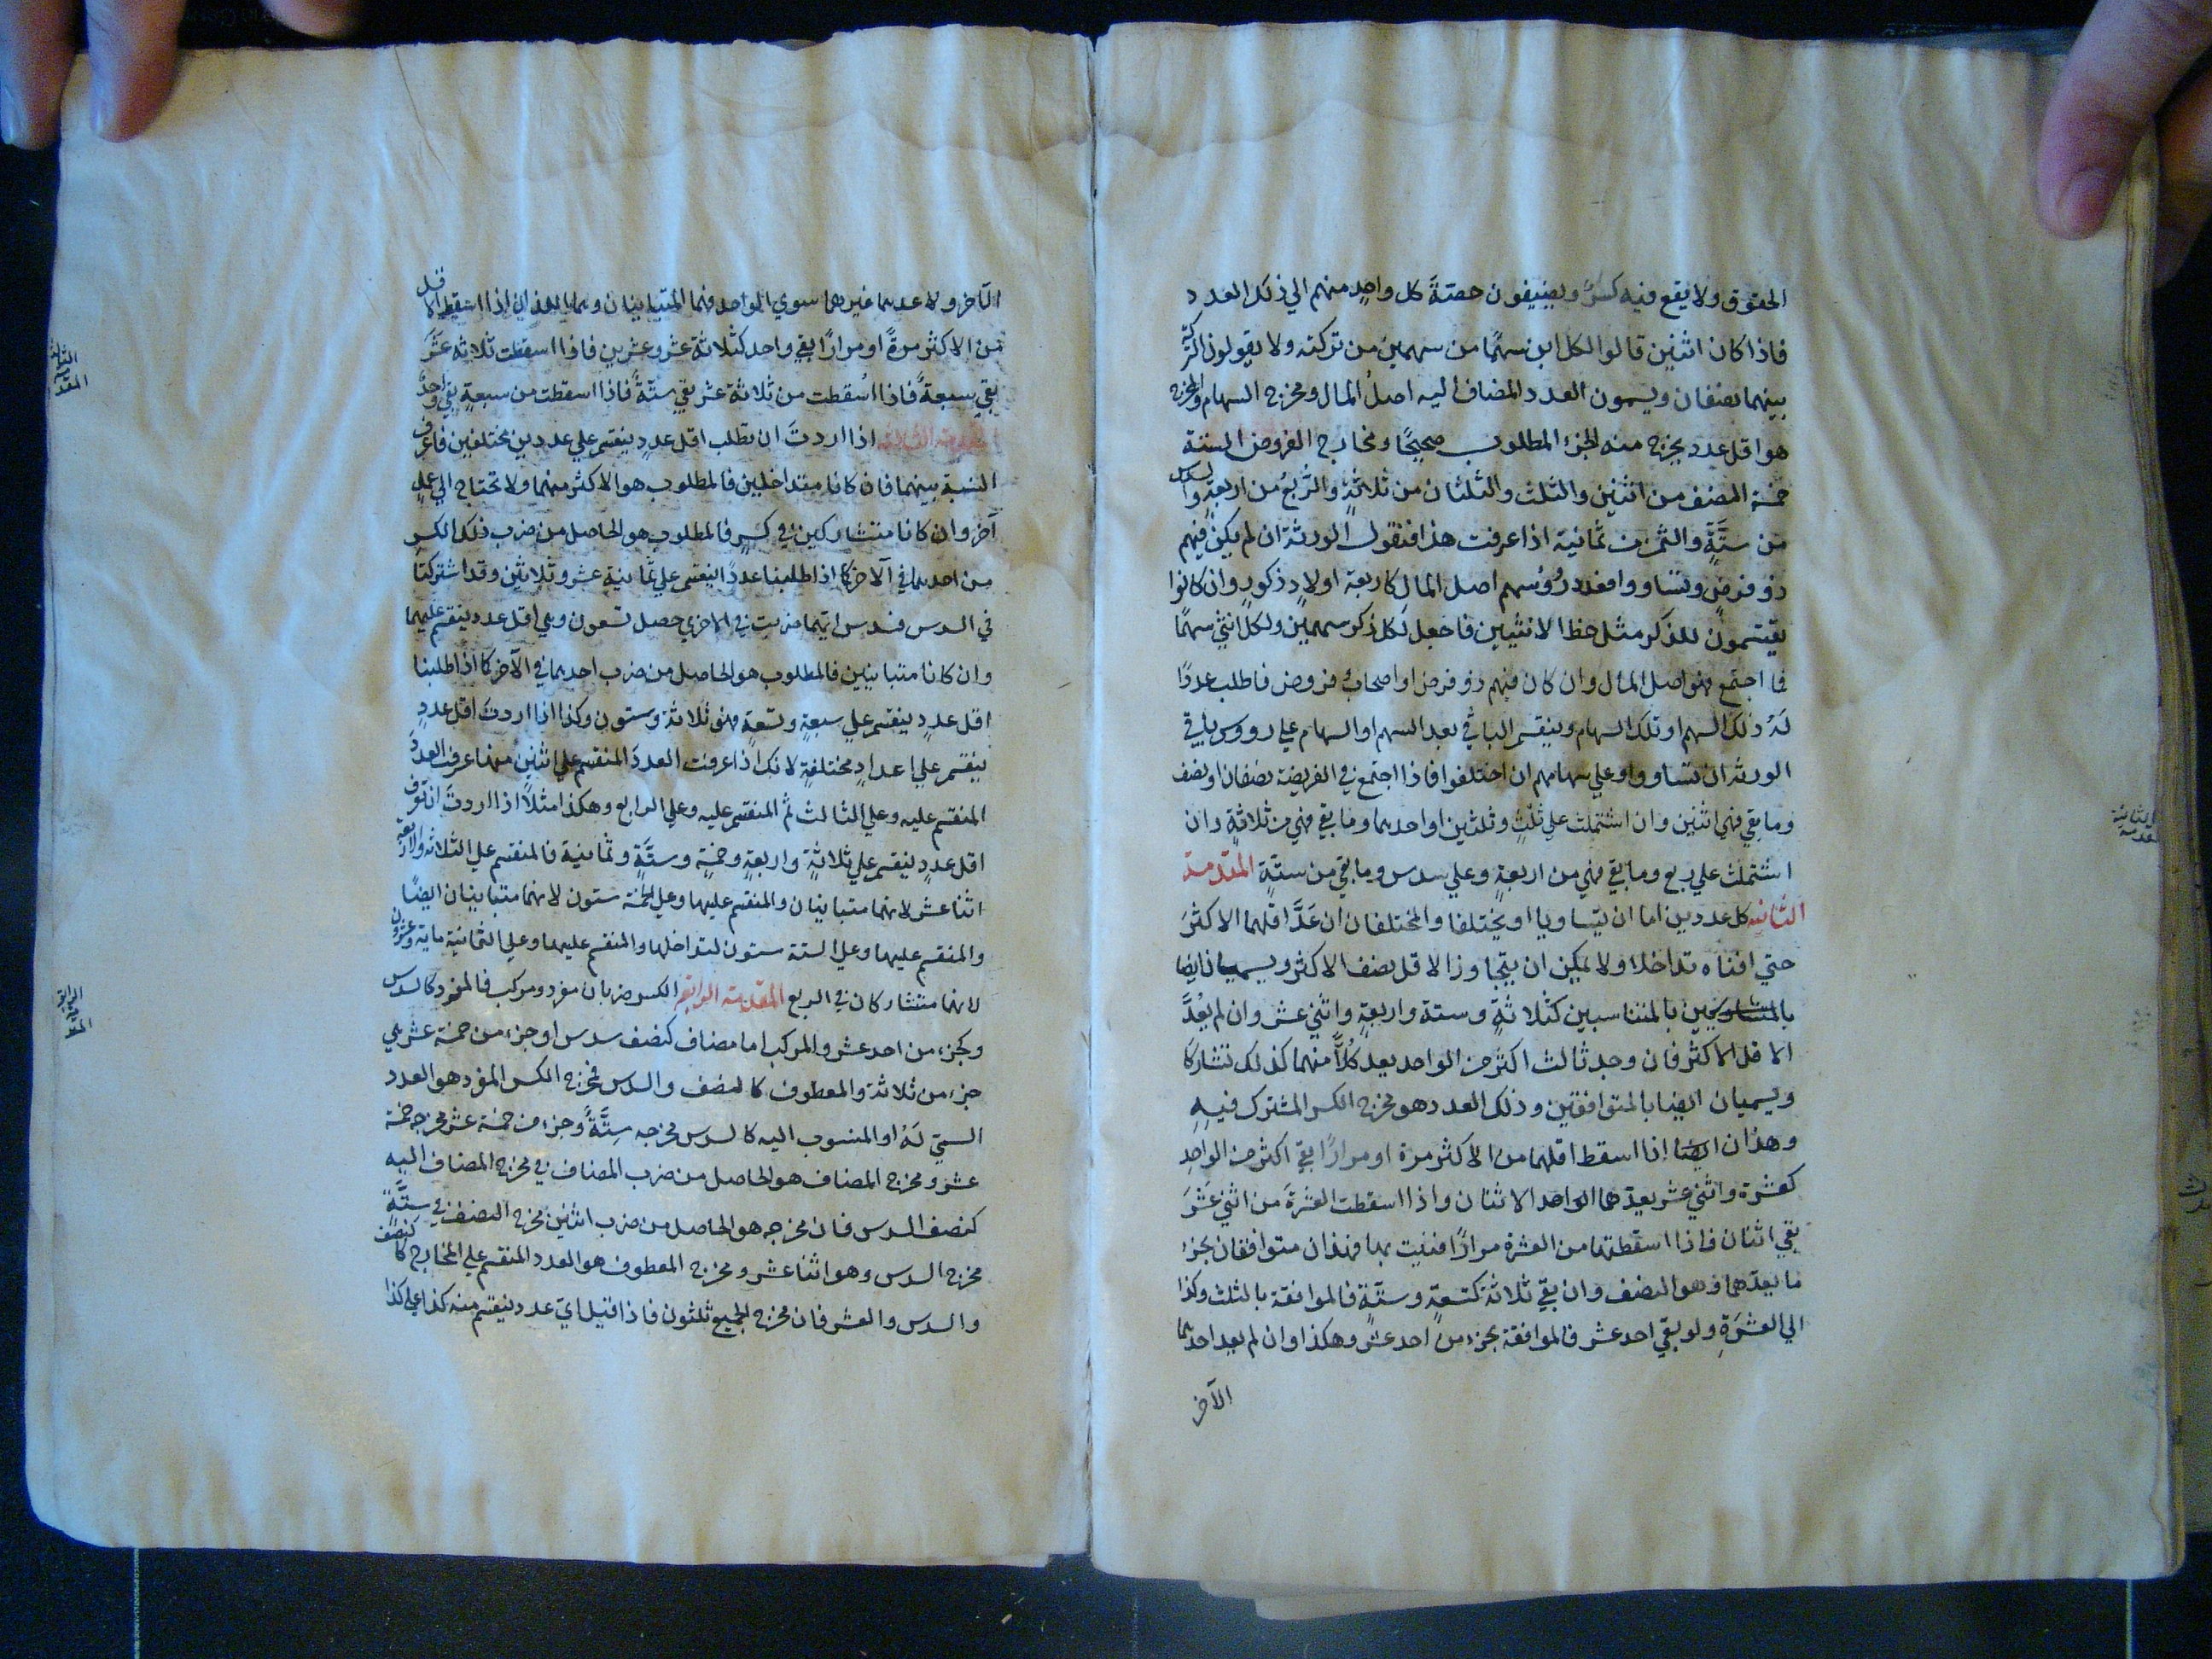 الحقوق ولا يقع فيه كسرٌ ويضيفون حصّةَ كل واحدٍ منهم الي ذلك العدد
فاذا كان اثنين قالوا لكل ابن سهمًا من سهمين من تركته ولا يقولون التركة
بينهما نصفان ويسمون العدد المضاف اليه اصلُ المال ومخرج السهام والمخرج
هو اقل عدد يخرج منه الجزء المطلوب صحيحًا ومخارج الفروض الستة
خمسة النصف من اثنين والثلث والثلثان من ثلاثةٍ والرُّبعُ من اربعةٍ والسدس
من ستَّةٍ والثمن من ثمانية اذا عرفت هذا فنقول الورثة ان لم يكن فيهم
ذو فرضٍ وتساووا فعدد رُؤسهم اصل المال كاربعة اولادٍ ذكورٍ وان كانوا
يقتسمون للذكر مثل حظ الانثيين فاجعل لكل ذكر سهمين ولكل انثي سهمًا
فما اجتمع فهو اصل المال وان كان فيهم ذو فرض او اصحابُ فروض فاطلب عددًا
لَهُ ذلك السهم او تلك السهام وينقسم الباقي بعد السهم او السهام علي رووس باقي
الورثه ان تساووا او علي سهامهم ان اختلفوا فاذا اجتمع في الفريضة نصفان او نصف
وما بقي فهي اثنين وان اشتملت علي ثلثٍ وثلثين او احدهما وما بقي فهي من ثلاثةٍ وان
اشتملت علي ربع وما بقي فهي من اربعةٍ وعلي سدس وما بقي من ستّةٍ المقدمة
الثانيه كل عددين اما ان يتساويا او يختلفا والمختلفان ان عَدَّ اقلهما الاكثرَ
حتي افناه تداخلا ولا يمكن ان يتجاوز الاقل نصف الاكثر ويسميان ايضا
بالمتناسبين كثلاثةٍ وستة واربعةٍ واثني عشر وان لم يَعُدَّ
الاقل الاكثر فان وجد ثالث اكثر من الواحد يعد كُلًّا منهما كذلك تشاركا
ويسميان ايضا بالمتوافقين وذلك العدد هو مخرج الكسر المشترك فيهِ
وهذان ايضا اذا اسقط اقلهما من الاكثر مرة او مرارًا بقي اكثر من الواحدِ
كعشرة واثني عشر يعدّهما الواحد الاثنان واذا اسقطت العشرةَ من اثني عشَرَ
بقي اثنان فاذا اسقطتهما من العشرة مرارًا فنيت بها فهذان متوافقان بجزء
ما يعدّهما وهو النصف وان بقي ثلاثة كتسعةٍ وستّة فالموافقة بالثلث وكذا
الي العشَرَةِ ولو بقي احد عشر فالموافقة بجزء من احد عشر وهكذا وان لم يعد احدهما
الآخر
الثانية
المقدمة
الآخر ولا عدهما غيرهما سوي الواحد فهما المتباينان وهما اللذان اذا اسقط الاقل
من الاكثر مرةً او مرارًا بقي واحد كثلاثة عشر وعشرين فاذا اسقطت ثلاثه عَشَرَ
بقي سبعةً فاذا اسُقطت من ثلاثة عشر بقي ستّةً فاذا اسقطت من سبعةٍ بقي واحدٌ
المقدمة الثالثة اذا اردتَ ان تطلب اقل عددٍ ينقسم علي عددين مختلفين فاعرف
النسبة بينهما فان كانا متداخلين فالمطلوب هو الاكثر منهما ولا تحتاج الي عملٍ
آخر وان كانا متشاركين في كسرٍ فالمطلوب هو الحاصل من ضرب ذلك الكسر
من احدهما في الآخر كما اذا طلبنا عددًا ينقسم علي ثمانية عشر وثلاثين وقد اشتركتا
في السدس فسدس ايّتهما ضربت في الاخري حصل تسعون وهي اقل عدد ينقسم عليهما
وان كانا متباينين فالمطلوب هو الحاصل من ضرب احدهما في الآخر كما اذا طلبنا
اقل عددٍ ينقسم علي سبعةٍ وتسعةٍ فهو ثلاثة وستون وكذا اذا اردتَ اقل عددٍ
ينقسم علي اعدادٍ مختلفةٍ لانك اذا عرفت العددَ المنقسم علي اثنين منها عرفت العددَ
المنقسم عليه وعلي الثالث ثم المنقسم عليه وعلي الرابع وهكذا مثلاً اذا اردتَ ان تعرف
اقل عددٍ ينقسم علي ثلاثةٍ واربعةٍ وخمسةٍ وستَّةٍ وثمانية فالمنقسم علي الثلاثه والاربعة
اثنا عشر لانهما متباينان والمنقسم عليها وعلي الخمسة ستون لانهما متباينان ايضًا
والمنقسم عليها وعلي الستة ستون لتداخلها والمنقسم عليهما وعلي الثمانية ماية وعشرون
لانهما متشاركان في الربع المقدمة الرابعة الكسر ضربان مفرد ومركب فالمفرد كالسدس
وكجزء من احد عشر والمركب اما مضاف كنصف سدس او جزء من خمسة عشر في
جزء من ثلاثة والمعطوف كالنصف والسدس فمخرج الكسر المفرد هو العدد
السمي لَهُ او المنسوب اليه كالسدس مخرجه سِتَّةٌ وجزء من خمسة عشر مخرجه خمسة
عشر ومخرج المضاف هو الحاصل من ضرب المضاف في مخرج المضاف اليه
كنصف السدس فان مخرجه هو الحاصل من ضرب اثنين مخرج النصف في ستَّةٍ
مخرج السدس وهو اثنا عشر ومخرج المعطوف هو العدد المنقسم علي المخارج كالنصف
والسدس والعشر فان مخرج الجميع ثلثون فاذا قيل ايّ عدد ينقسم منه كذا علي كذا
الثالثة
المقدمة
الرابعة
المقدمة